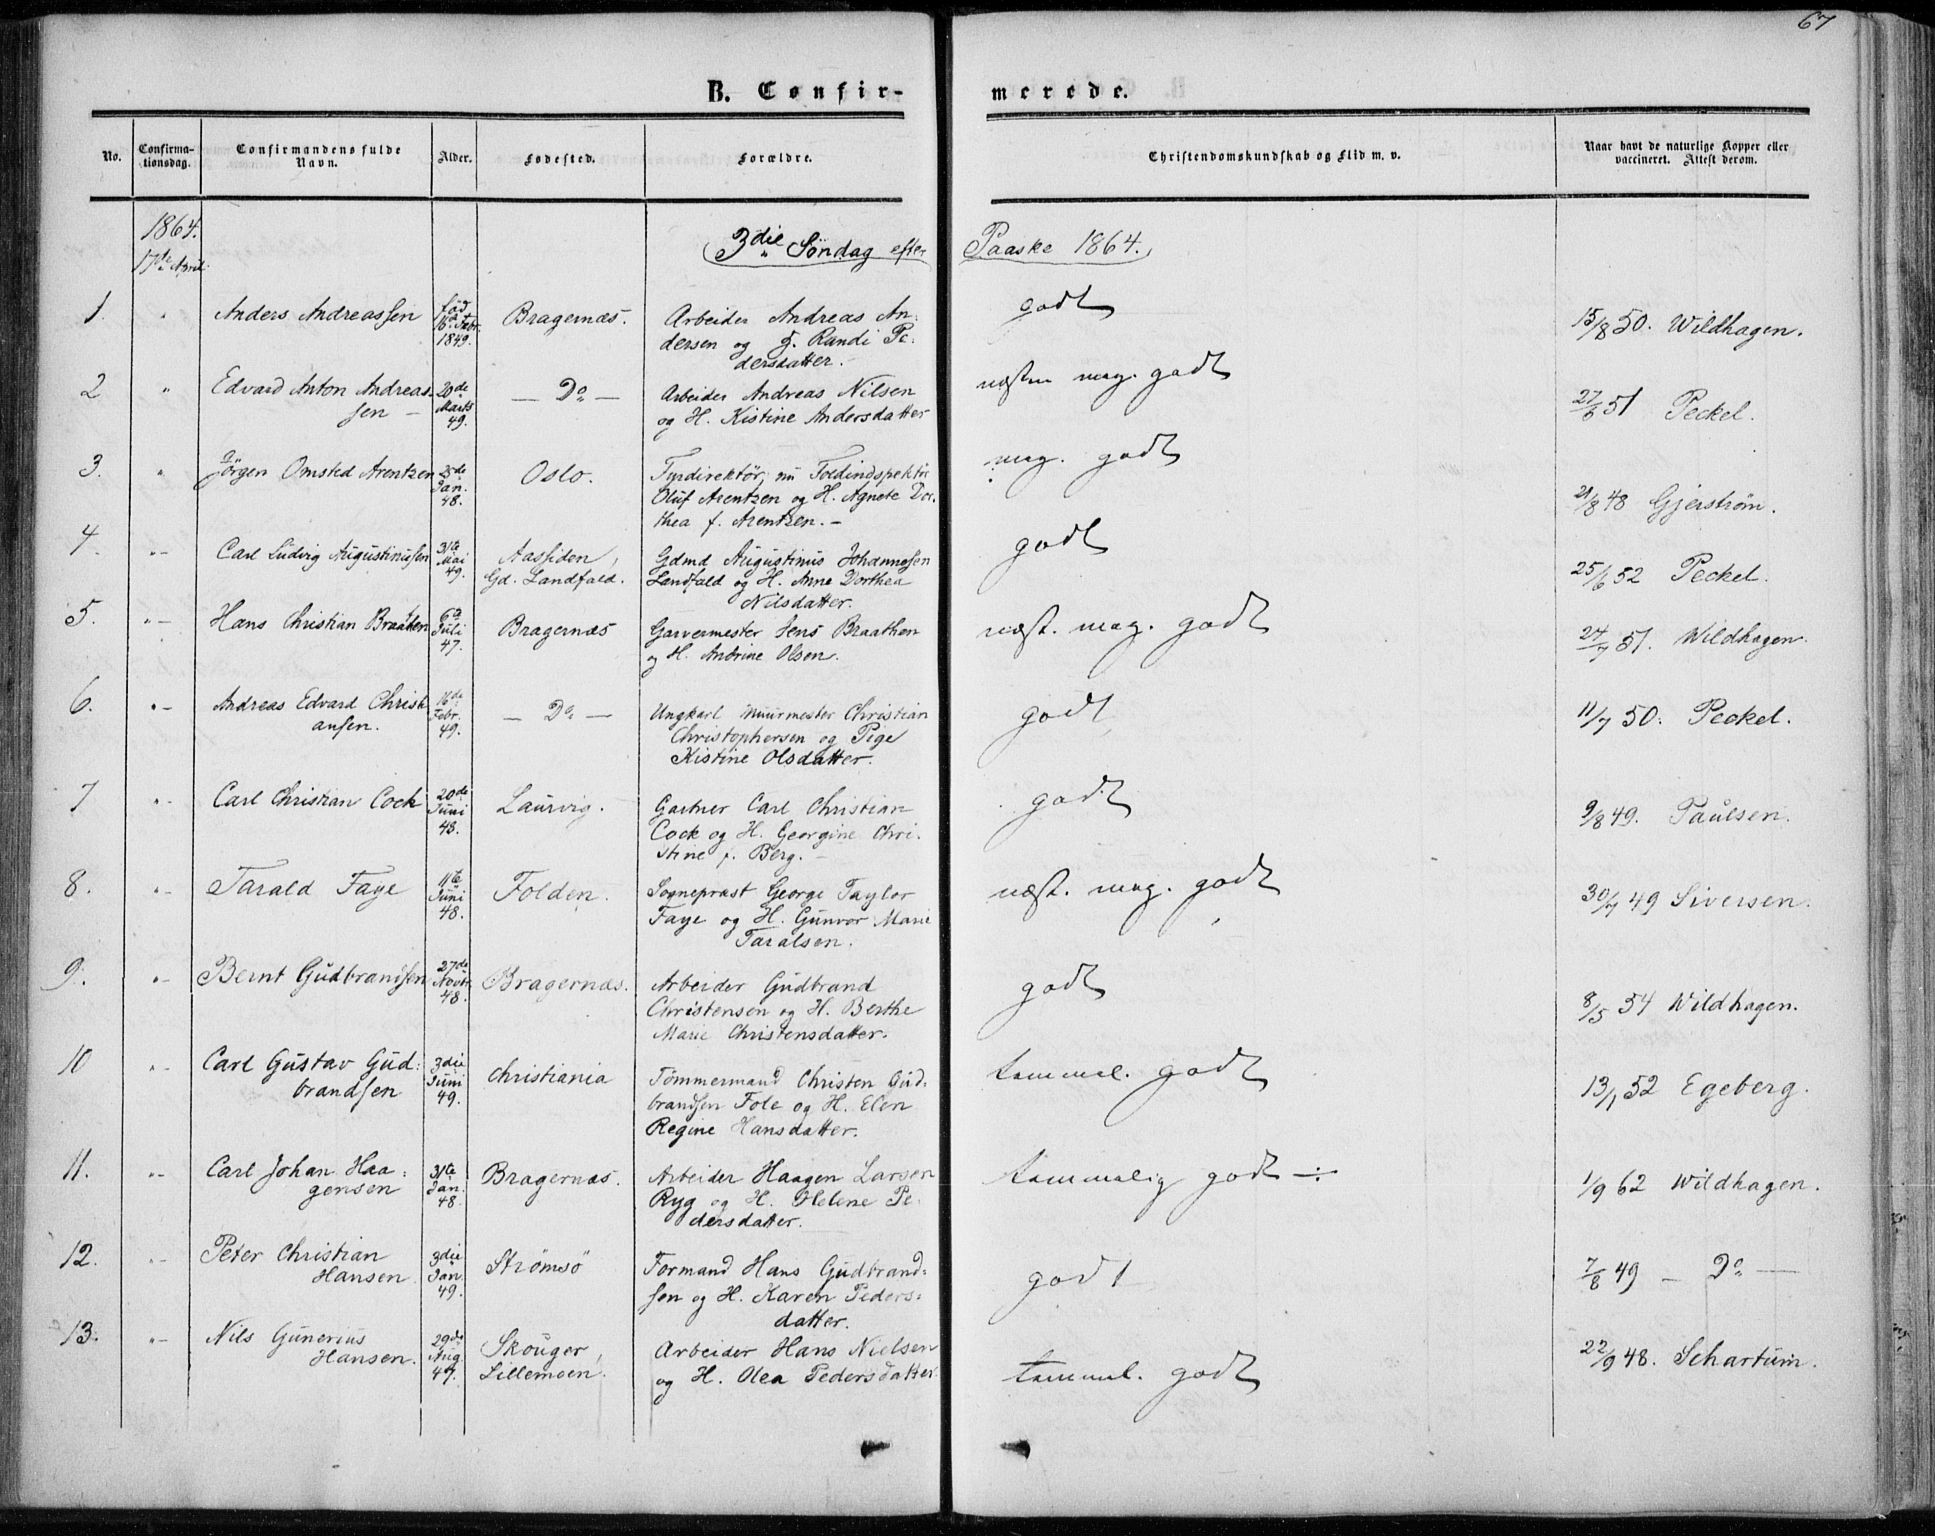 67
B. Confirmerede.
No. Confirmationsdag. Confirmandens fulde Navn. Alder. Fødested. Forældre. Christendomskundskab og Flid m. v. Naar havt de naturlige Kopper eller vaccineret. Attest derom.
1864.
17de April
3die Søndag efter Paaske 1864.
1. " Anders Andreassen
fød 16. Febr. 1849.
Bragernæs.
Arbeider Andreas An-
dersen og f. Randi Pe-
dersdatter.
godt
15/8 50. Wildhagen.
2 " Edvard Anton Andreas-
sen
20de Marts 49.
Do
Arbeider Andreas Nilsen
og H. Kistine Andersdatter
næsten meg. godt
27/6 51 Peckel.
3. " Jörgen Omsted Arentzen
25de Jan. 48.
Oslo.
Tyrdirektör, nu Toldindspektör
Oluf Arentzen og H. Agnete Dor-
thea f. Arentzen.
meg. godt
21/8 48 Gjerström.
4. " Carl Ludvig Augustinussen
31te Mai 49.
Aassiden,
Gd. Landfald.
Gdmd Augustinus Johannessen
Landfald og H. Anne Dorthea
Nilsdatter.
godt
25/6 52 Peckel.
5. " Hans Christian Braathen
6te Juli 47.
Bragernæs
Garvermester Jens Braathen
og H. Andrine Olsen.
næst. meg. godt
24/7 51. Wildhagen.
6. " Andreas Edvard Christi
ansen.
16de Febr. 49.
Do
Ungkarl Muurmester Christian
Christophersen og Pige
Kistine Olsdatter.
godt
11/7 50. Peckel.
7 " Carl Christian Cock
20de Juni 48.
Laurvig.
Gartner Carl Christian
Cock og H. Georgine Chri-
stine f. Berg.
godt
9/8 49. Paulsen.
8. " Tarald Faye
11te Juni 48.
Folden.
Sognepræst George Taylor
Faye og H. Gunvor Marie
Taralsen.
næst. meg. godt
30/7 49 Siversen.
9. " Bernt Gudbrandsen
27de Novbr. 48.
Bragernæs.
Arbeider Gudbrand
Christensen og H. Berthe
Marie Christensdatter.
godt
8/5 54 Wildhagen.
10 " Carl Gustav Gud-
brandsen
3die Juni 49.
Christiania
Tömmermand Christen Gud-
brandsen Fole og H. Elen
Regine Hansdatter.
temmel. godt
13/1 52 Egeberg.
11. " Carl Johan Haa-
gensen
31te Jan. 48.
Bragernæs.
Arbeider Haagen Larsen
Ryg og H. Helene Pe-
dersdatter.
temmelig godt ÷
1/9 62 Wildhagen.
12. " Peter Christian
Hansen
3die Jan. 49.
Strömsö
Formand Hans Gudbrand-
sen og H. Karen Peders-
datter.
godt
7/8 49 — Do —
13. " Nils Gunerius
Hansen.
29de Aug 47.
Skouger,
Lillemoen.
Arbeider Hans Nielsen
og H. Olea Pedersdatter
temmel. godt
22/9 48. Schartum.